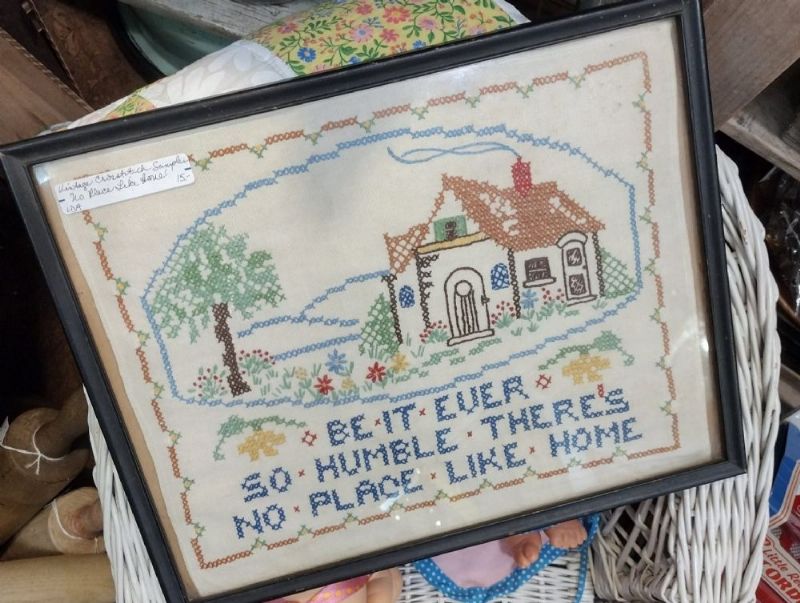 Vintage Crosstitch Sampler
"No Place Like Home"
15-
BE·IT·EVER
SO·HUMBLE·THERE'S
NO·PLACE·LIKE·HOME
Little